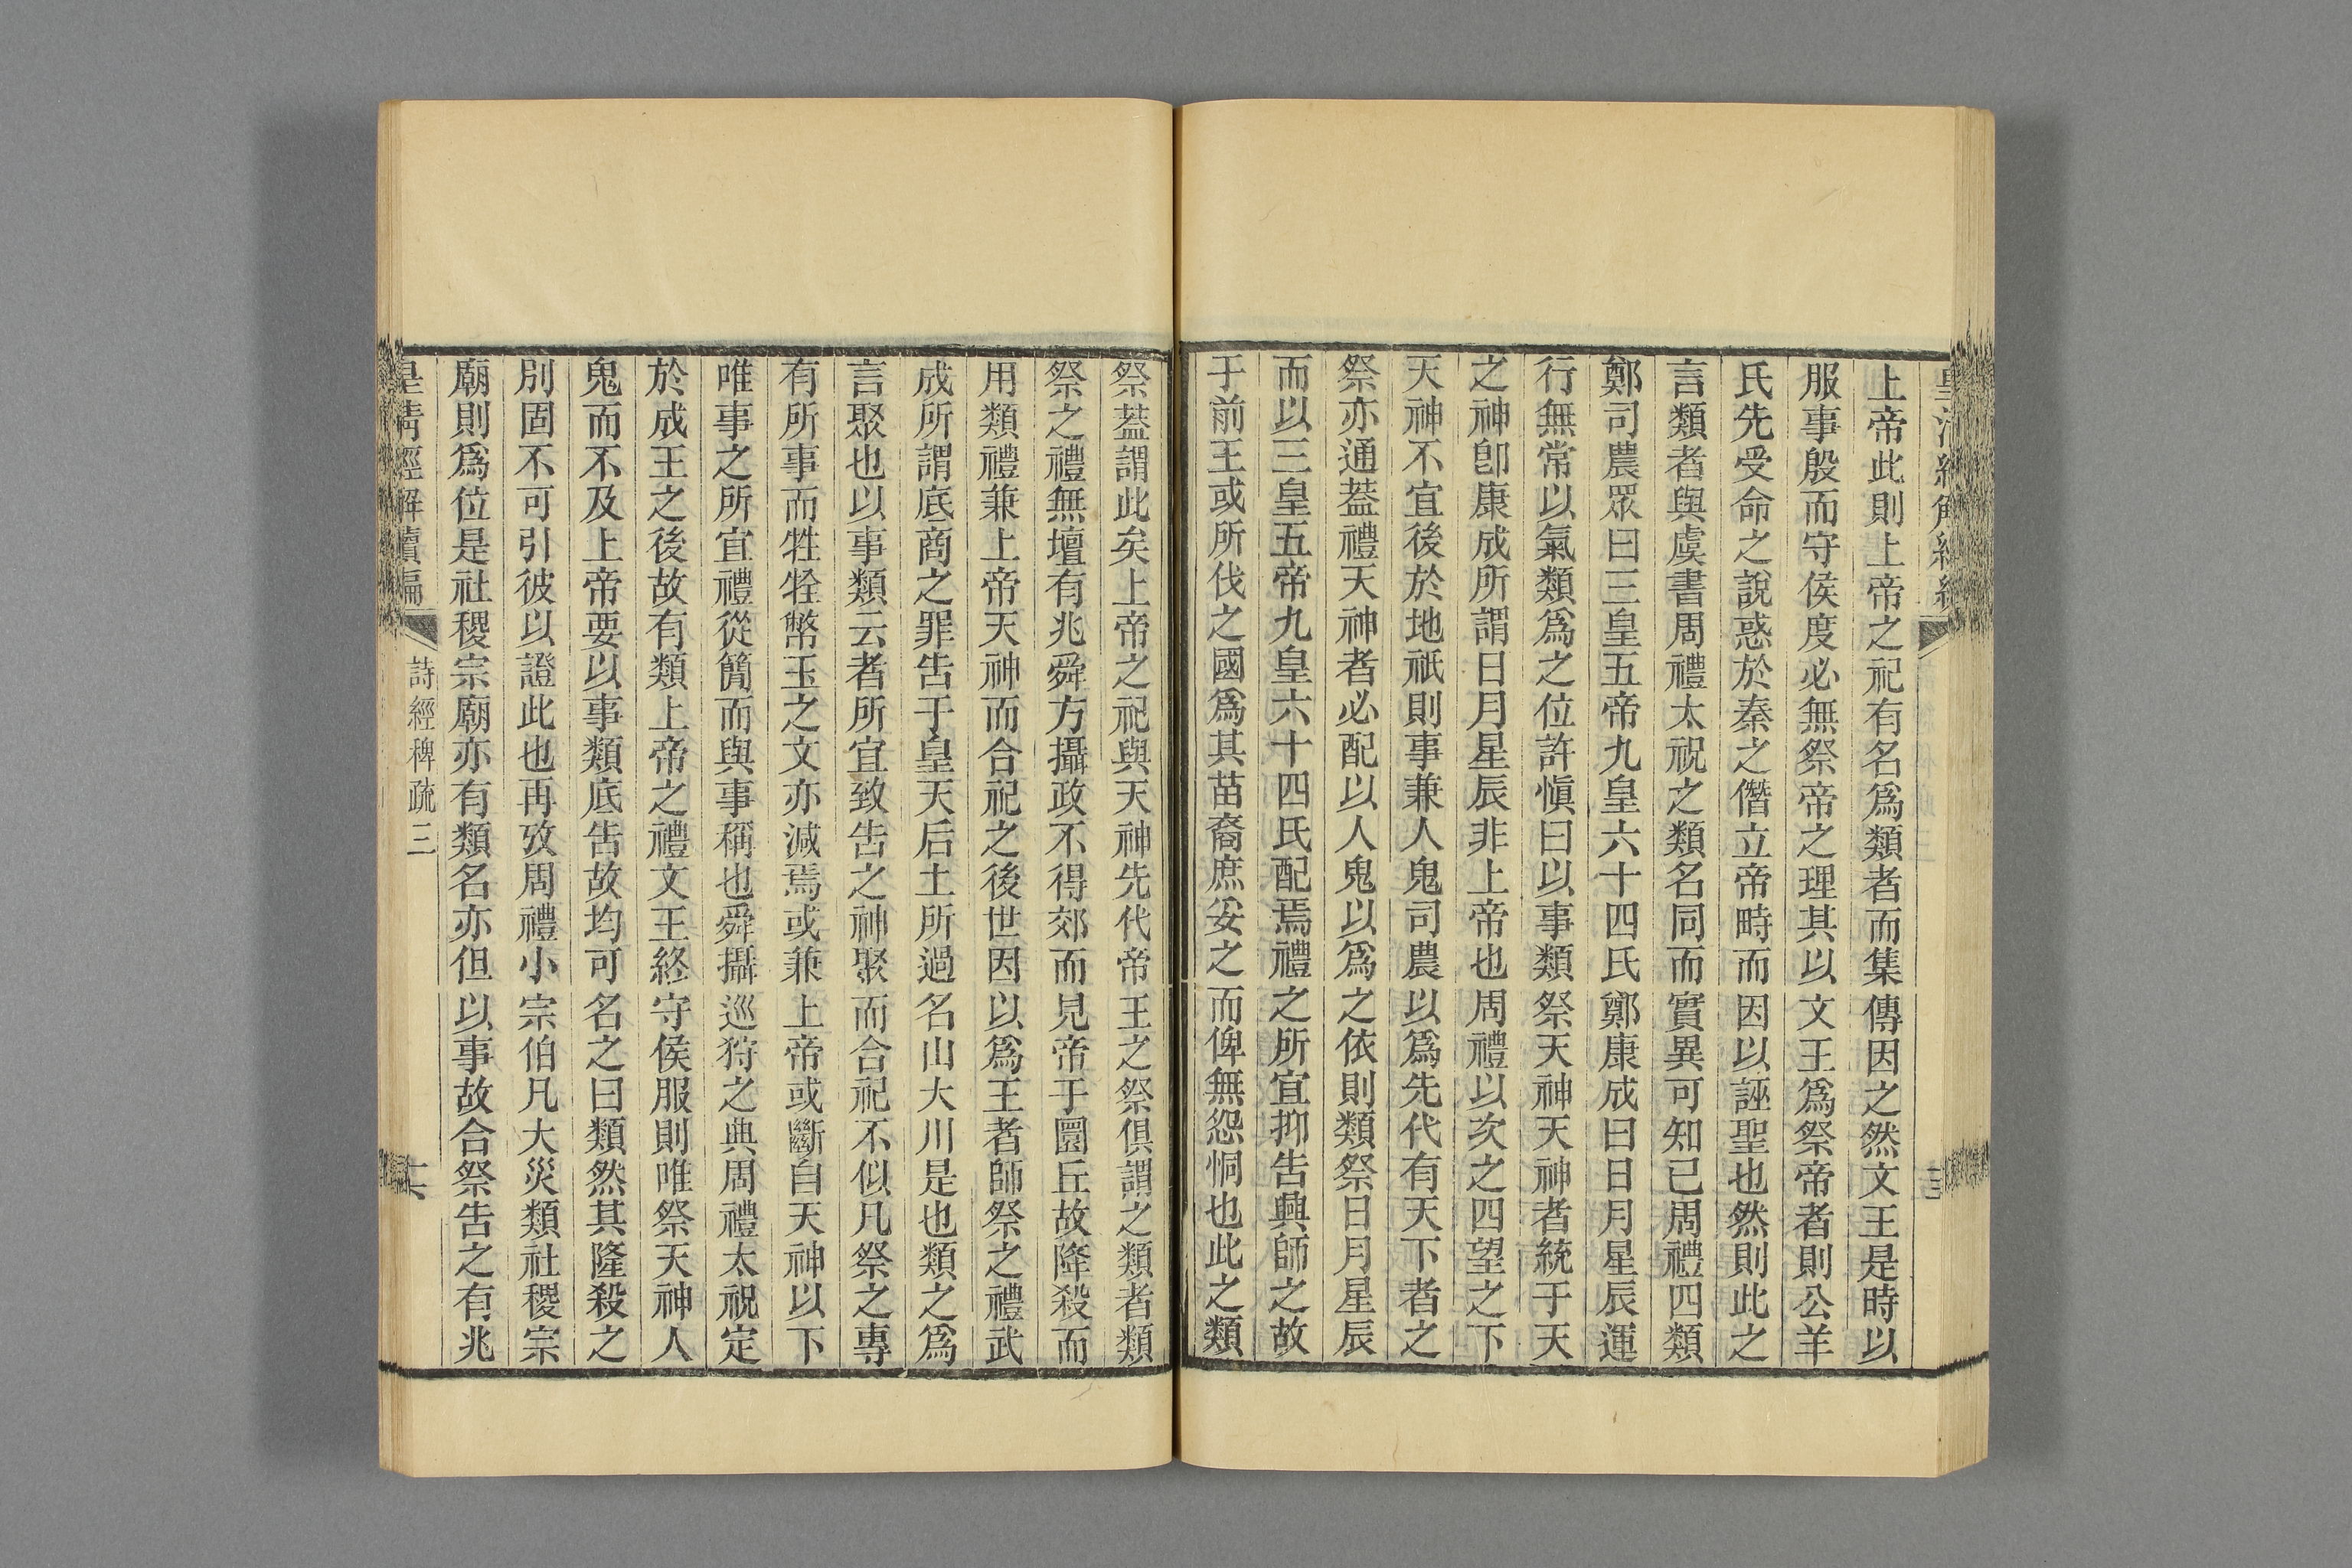 上帝此則上帝之祀有名爲類者而集傳因之然文王是時以
服事殷而守侯度必無祭帝之理其以文王爲祭帝者則公羊
氏先受命之說惑於秦之僭立帝畤而因以誣聖也然則此之
言類者與虞書周禮太祝之類名同而實異可知已周禮四類
鄭司農眾曰三皇五帝九皇六十四氏鄭康成曰日月星辰運
行無常以氣類爲之位許愼曰以事類祭天神天神者統于天
之神卽康成所謂日月星辰非上帝也周禮以次之四望之下
天神不宜後於地祇則事兼人鬼司農以爲先代有天下者之
祭亦通葢禮天神者必配以人鬼以爲之依則類祭日月星辰
而以三皇五帝九皇六十四氏配焉禮之所宜抑告興師之故
于前王或所伐之國爲其苗裔庶妥之而俾無怨恫也此之類
祭葢謂此矣上帝之祀與天神先代帝王之祭俱謂之類者類
祭之禮無壇有兆舜方攝政不得郊而見帝于圜丘故降殺而
用類禮兼上帝天神而合祀之後世因以爲王者師祭之禮武
成所謂底商之罪告于皇天后土所過名山大川是也類之爲
言聚也以事類云者所宜致告之神聚而合祀不似凡祭之專
有所事而牲牷幣玉之文亦減焉或兼上帝或斷自天神以下
唯事之所宜禮從簡而與事稱也舜攝巡狩之典周禮太祝定
於成王之後故有類上帝之禮文王終守侯服則唯祭天神人
鬼而不及上帝要以事類底告故均可名之曰類然其隆殺之
別固不可引彼以證此也再攷周禮小宗伯凡大災類社稷宗
廟則爲位是社稷宗廟亦有類名亦但以事故合祭告之有兆
皇清經解續編 詩經稗疏三